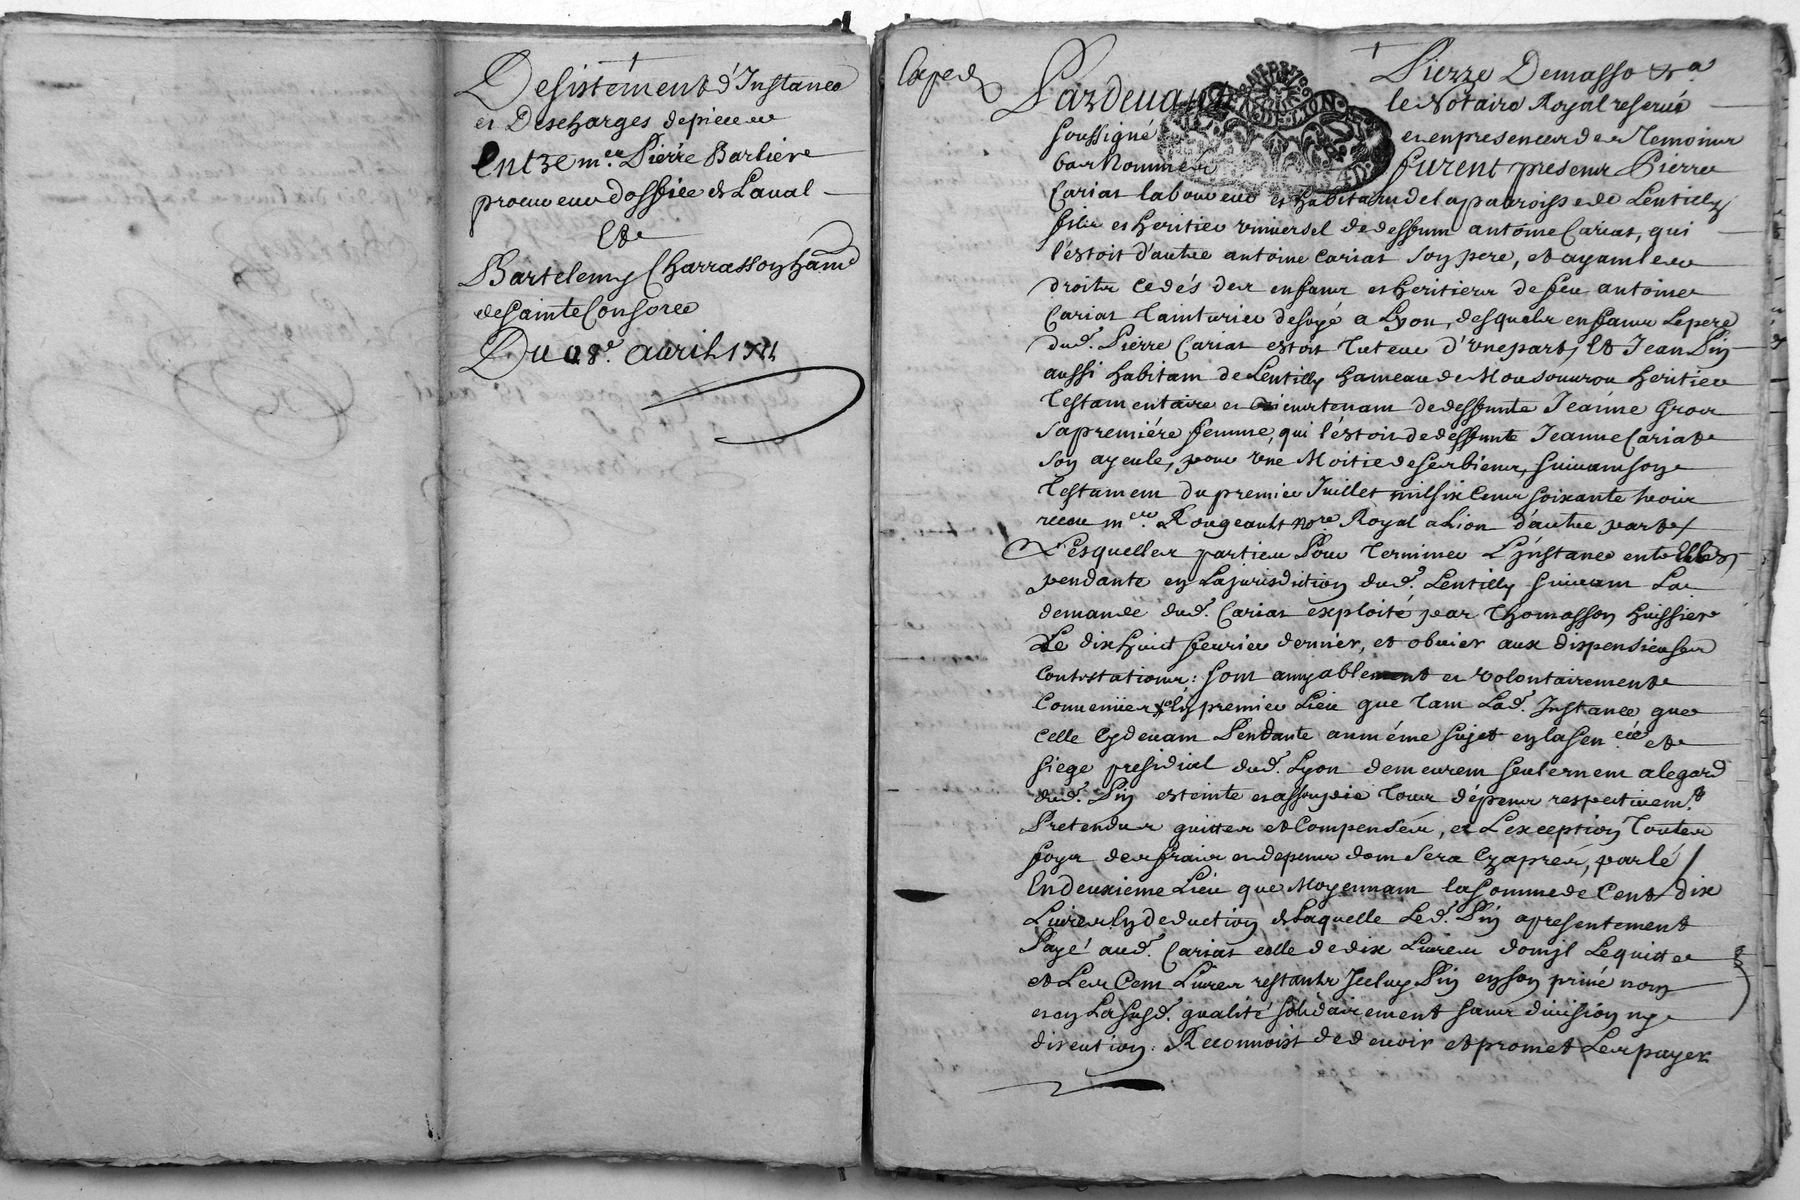 Desistement d'Instance
et Descharges de pieces
Entre m.re Pierre Barliere
procureur d'office de Laval
Et
Bartelemy Charrasson ham.
de Sainte Consorce
Du 28.e avril
Exped
Pierre Demasso
Pardevant le Notaire Royal reservé
soussigné et en presences des Temoins
bas Nommés furent presens Pierre
Cariat laboureur et habitant de la parroisse de Lentilly
fils et heritier universel de deffunt antoine Cariat, qui
l'estoit d'autre antoine Cariat son pere, et ayant les
droits cedés des enfans et heritiers de feu antoine
Cariat Tainturier de soye a Lyon, desquels enfans le pere
dud. Pierre Cariat estoit Tuteur d'une part, Et Jean Pin
aussi habitant de Lentilly hameau de heritier
Testamentaire et de deffunte Jeanne Gros
sa premiére femme, qui l'estoit de deffunte Jeanne Cariat
son ayeule, pour une Moitié de ses biens, suivant son
Testament du premier Juillet mil six cens soixante trois
receu m.re Rougeault no.re Royal a Lion d'autre part
Lesquelles parties Pour Terminer L'jnstance entr'Elles
pendante en La jurisdiction dud. Lentilly suivant La
demande dud. Cariat exploité par Thomasson huissier
Le dix huit fevrier dernier, et obvier aux dispendieuses
Contestations: sont amyablement et volontairement
Convenües En premier Lieu que Tant Lad. Instance que
celle Cydevant Pendante au même sujet en la sen.cée et
siege presidial dud. Lyon demeurent seulement a l'egard
dud. Pin esteinte et assoupie Tous dépens respectivem.t
Pretendus quittes et Compensés, et L'exception Toutes
foys des frais et depens dont sera Cy aprés, parlé
En deuxieme Lieu que Moyennant la somme de Cent dix
Livres En deduction de Laquelle Led. Pin a presentement
Payé aud. Cariat celle de dix Livres dont jl Le quitte
et Les Cent Livres restants Jceluy Pin en son privé nom
et en La susd. qualité solidairement sans division ny
discution: Reconnoist de devoir et promet Les payer